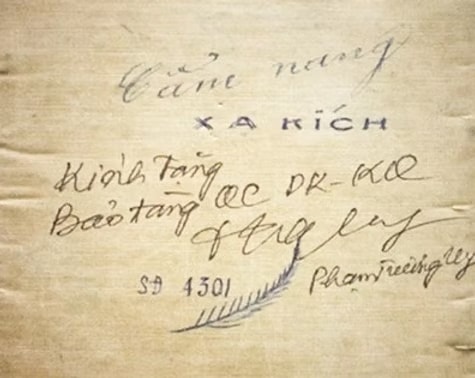 Cẩm nang
XA KÍCH
Kính tặng
Bảo tàng QC DK-KQ
SĐ 4301
Phạm Trường Uy